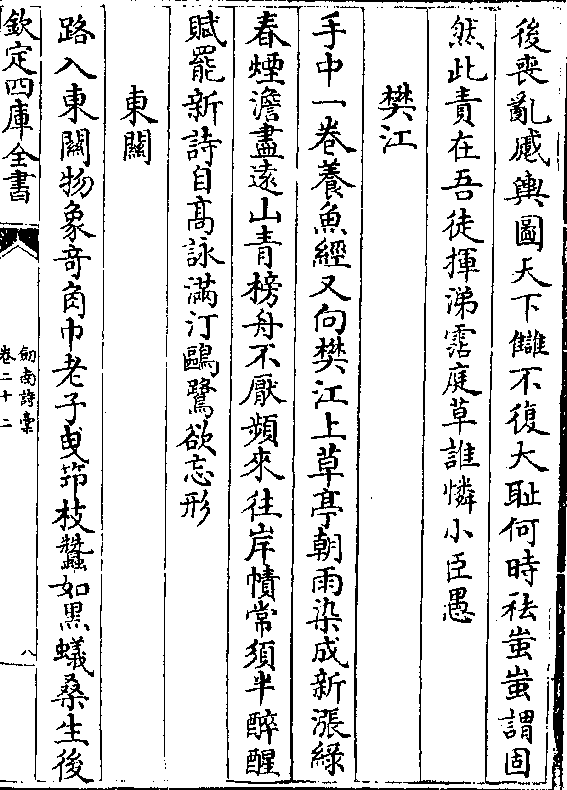 後喪亂臧輿圖天下讎不復大耻何時祛蚩蚩謂固
然此責在吾徒揮涕霑庭草誰憐小臣愚
樊江
手中一卷養魚經又向樊江上草亭朝雨染成新漲綠
春煙澹盡遠山青榜舟不厭頻來往岸幘常須半醉醒
賦罷新詩自高詠滿汀鷗鷺欲忘形
東關
路入東關物象奇角巾老子曳笻枝蠶如黑蟻桑生後
欽定四庫全書
劒南詩稾
卷二十二
八